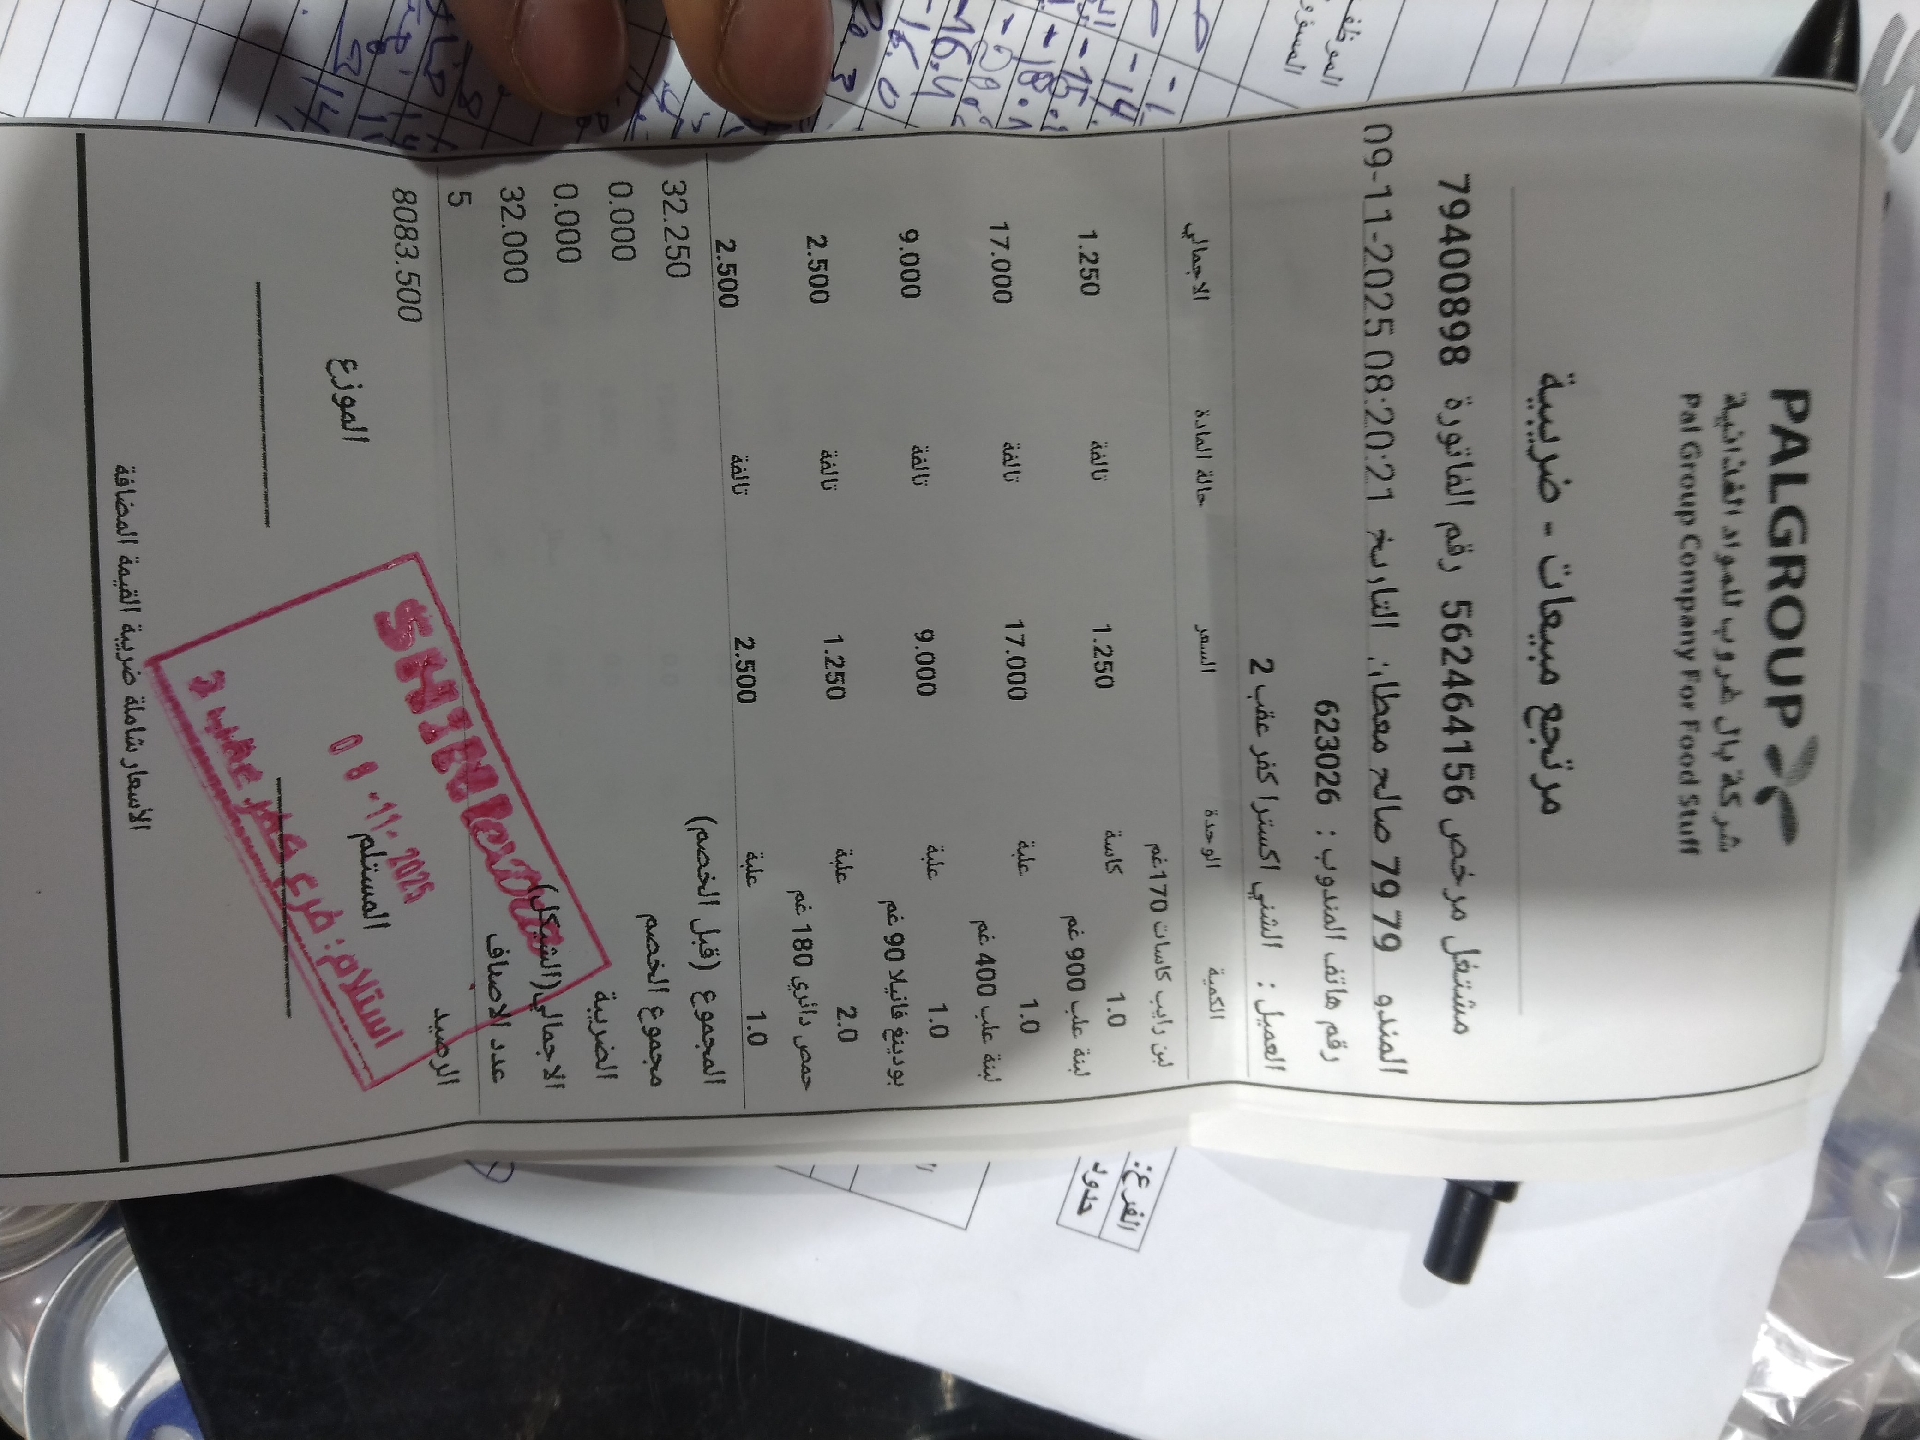 PALGROUP
شركة بال غروب للمواد الغذائية
Pal Group Company For Food Stuff
مرتجع مبيعات - ضريبية
مشتغل مرخص 562464156 رقم الفاتورة 79400898
المندو 79 79 صالح معطان التاريخ 09-11-2025 08:20:21
رقم هاتف المندوب : 623026
العميل : الشني اكسترا كفر عقب 2
الكمية الوحدة السعر حالة المادة الاجمالي
لبن رايب كاسات 170غم
1.0 كاسة 1.250 تالفة 1.250
لبنة علب 900 غم
1.0 علبة 17.000 تالفة 17.000
لبنة علب 400 غم
1.0 علبة 9.000 تالفة 9.000
بودينغ فانيلا 90 غم
2.0 علبة 1.250 تالفة 2.500
حمص دائري 180 غم
1.0 علبة 2.500 تالفة 2.500
المجموع (قبل الخصم) 32.250
مجموع الخصم 0.000
الضريبة 0.000
الاجمالي(الشيكل) 32.000
عدد الاصناف 5
الرصيد 8083.500
المستلم الموزع
08-11-2025
استلام: فرع كفر عقب 2
الأسعار شاملة ضريبة القيمة المضافة
الفرع: